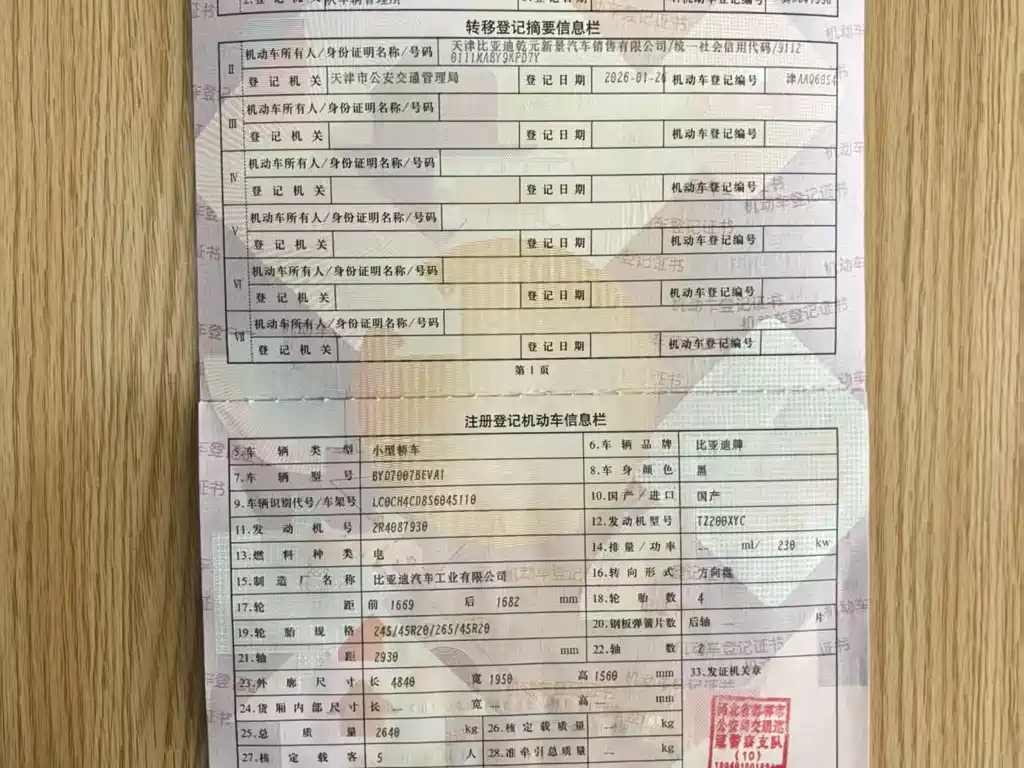 转移登记摘要信息栏
II 机动车所有人/身份证明名称/号码 天津比亚迪乾元新景汽车销售有限公司/统一社会信用代码/9112
0111MABY9KPD7Y
登记机关 天津市公安交通管理局 登记日期 2026-01-26 机动车登记编号 津AAQ6054
III 机动车所有人/身份证明名称/号码
登记机关 登记日期 机动车登记编号
IV 机动车所有人/身份证明名称/号码
登记机关 登记日期 机动车登记编号
V 机动车所有人/身份证明名称/号码
登记机关 登记日期 机动车登记编号
VI 机动车所有人/身份证明名称/号码
登记机关 登记日期 机动车登记编号
VII 机动车所有人/身份证明名称/号码
登记机关 登记日期 机动车登记编号
第1页
注册登记机动车信息栏
5.车辆类型 小型轿车 6.车辆品牌 比亚迪牌
7.车辆型号 BYD7007BEVA1 8.车身颜色 黑
9.车辆识别代号/车架号 LC0CH4CD8S6045110 10.国产/进口 国产
11.发动机号 2R4087930 12.发动机型号 TZ200XYC
13.燃料种类 电 14.排量/功率 -- ml/ 230 kw
15.制造厂名称 比亚迪汽车工业有限公司 16.转向形式 方向盘
17.轮距 前 1669 后 1682 mm 18.轮胎数 4
19.轮胎规格 245/45R20/265/45R20 20.钢板弹簧片数 后轴 -- 片
21.轴距 2930 mm 22.轴数 2
23.外廓尺寸 长 4840 宽 1950 高 1560 mm 33.发证机关章
24.货厢内部尺寸 长 -- 宽 -- 高 -- mm
25.总质量 2640 kg 26.核定载质量 -- kg
27.核定载客 5 人 28.准牵引总质量 -- kg
河北省邯郸市
公安局交通巡
逻警察支队
(10)